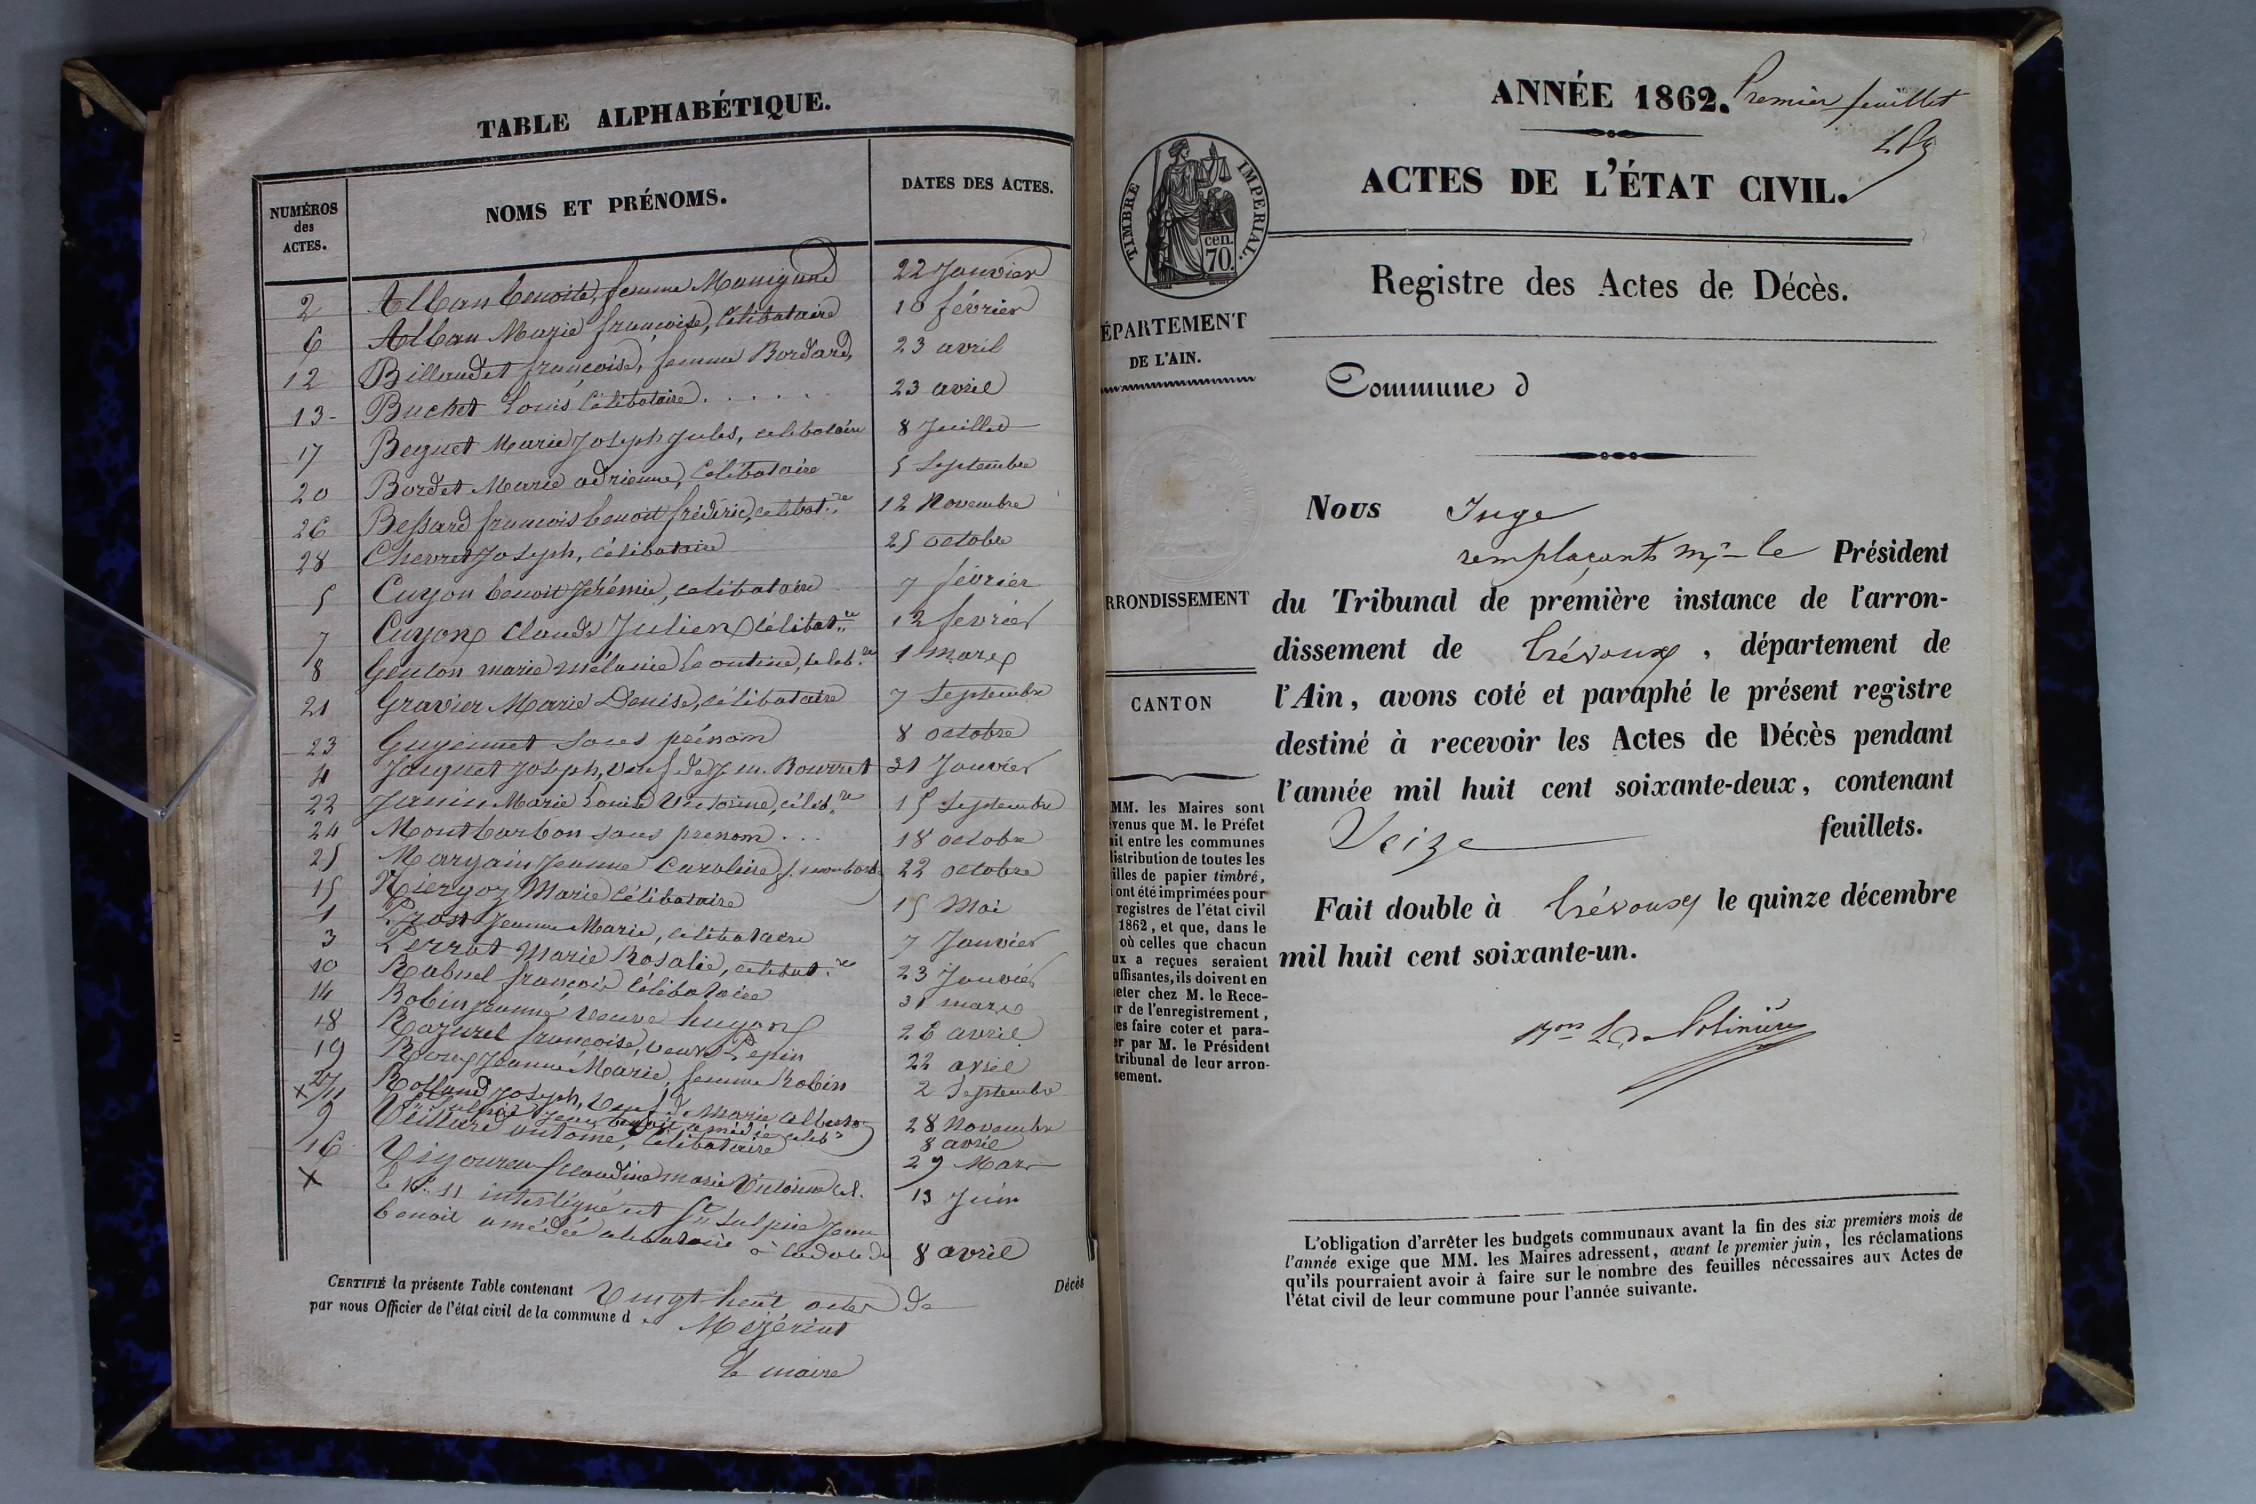 TABLE ALPHABÉTIQUE.
NUMÉROS des ACTES.
NOMS ET PRÉNOMS.
DATES DES ACTES.
2 Alban benoite, femme Manigand 22 Janvier
6 Alban Marie françoise, Célibataire 10 février
12 Billaudet françoise, femme Bordard, 23 avril
13- Buchet Louis Célibataire. . . . . . 23 avril
17 Beguet Marie Joseph Jules, celibataire 8 Juillet
20 Bordet Marie adrienne, Célibataire 5 Septembre
26 Bessard françois benoit frédéric, celibat.re 12 Novembre
28 Chevret Joseph, Célibataire 25 octobre
5 Cuyon benoit Jérémie, celibataire 7 février
7 Cuyon Claude Julien Célibat.re 12 fevrier
8 Genton marie mélanie Leontine, celeb.re 1 mars
21 Gravier Marie Denise, célibataire 7 Septembre
23 Guyennet sans prénom 8 octobre
4 Jauquet Joseph, veuf de J. m. Bourret 31 Janvier
22 Janin Marie Louise Victorine, célib.re 15 Septembre
24 Montbarbon sans prenom . . . 18 octobre
25 Margain Jeanne Caroline f. montbarb. 22 octobre
15 Niergoz Marie Célibataire 15 Mai
1 Prost Jeanne Marie, celibataire 7 Janvier
3 Perrat Marie Rosalie, celibat.re 23 Janvier
10 Rabuel françois Célibataire 31 mars
14 Robin Jeanne, veuve huyon 26 avril
18 Razurel françoise, veuve Pepin 22 avril
19 Roux Jeanne Marie, femme Robin 2 Septembre
27 Rolland Joseph, veuf de Marie Albert 28 Novembre
X 11 St Sulpice Jean benoit amédée celib.re 8 avril
9 Veillard antoine, Célibataire 29 Mars
16 Vigoureux Claudine marie Victorine Cel. 13 Juin
X Le N° 11 interligné est St Sulpice Jean
benoit amédée celibataire à la date du 8 avril
CERTIFIÉ la présente Table contenant Vingt huit actes de Décès
par nous Officier de l'état civil de la commune d Mézériat
Le maire
ANNÉE 1862. Premier feuillet
ACTES DE L'ÉTAT CIVIL.
TIMBRE IMPERIAL.
cen.
70.
Registre des Actes de Décès.
ÉPARTEMENT
DE L'AIN.
Commune d
Nous Juge
remplaçant mr le Président
RRONDISSEMENT
du Tribunal de première instance de l'arron-
dissement de Trévoux, département de
l'Ain, avons coté et paraphé le présent registre
CANTON
destiné à recevoir les Actes de Décès pendant
l'année mil huit cent soixante-deux, contenant
Seize feuillets.
MM. les Maires sont
venus que M. le Préfet
ait entre les communes
distribution de toutes les
illes de papier timbré,
ont été imprimées pour
registres de l'état civil
1862, et que, dans le
où celles que chacun
ux a reçues seraient
uffisantes, ils doivent en
eter chez M. le Rece-
r de l'enregistrement,
es faire coter et para-
er par M. le Président
tribunal de leur arron-
sement.
Fait double à Trévoux le quinze décembre
mil huit cent soixante-un.
L'obligation d'arrêter les budgets communaux avant la fin des six premiers mois de
l'année exige que MM. les Maires adressent, avant le premier juin, les réclamations
qu'ils pourraient avoir à faire sur le nombre des feuilles nécessaires aux Actes de
l'état civil de leur commune pour l'année suivante.